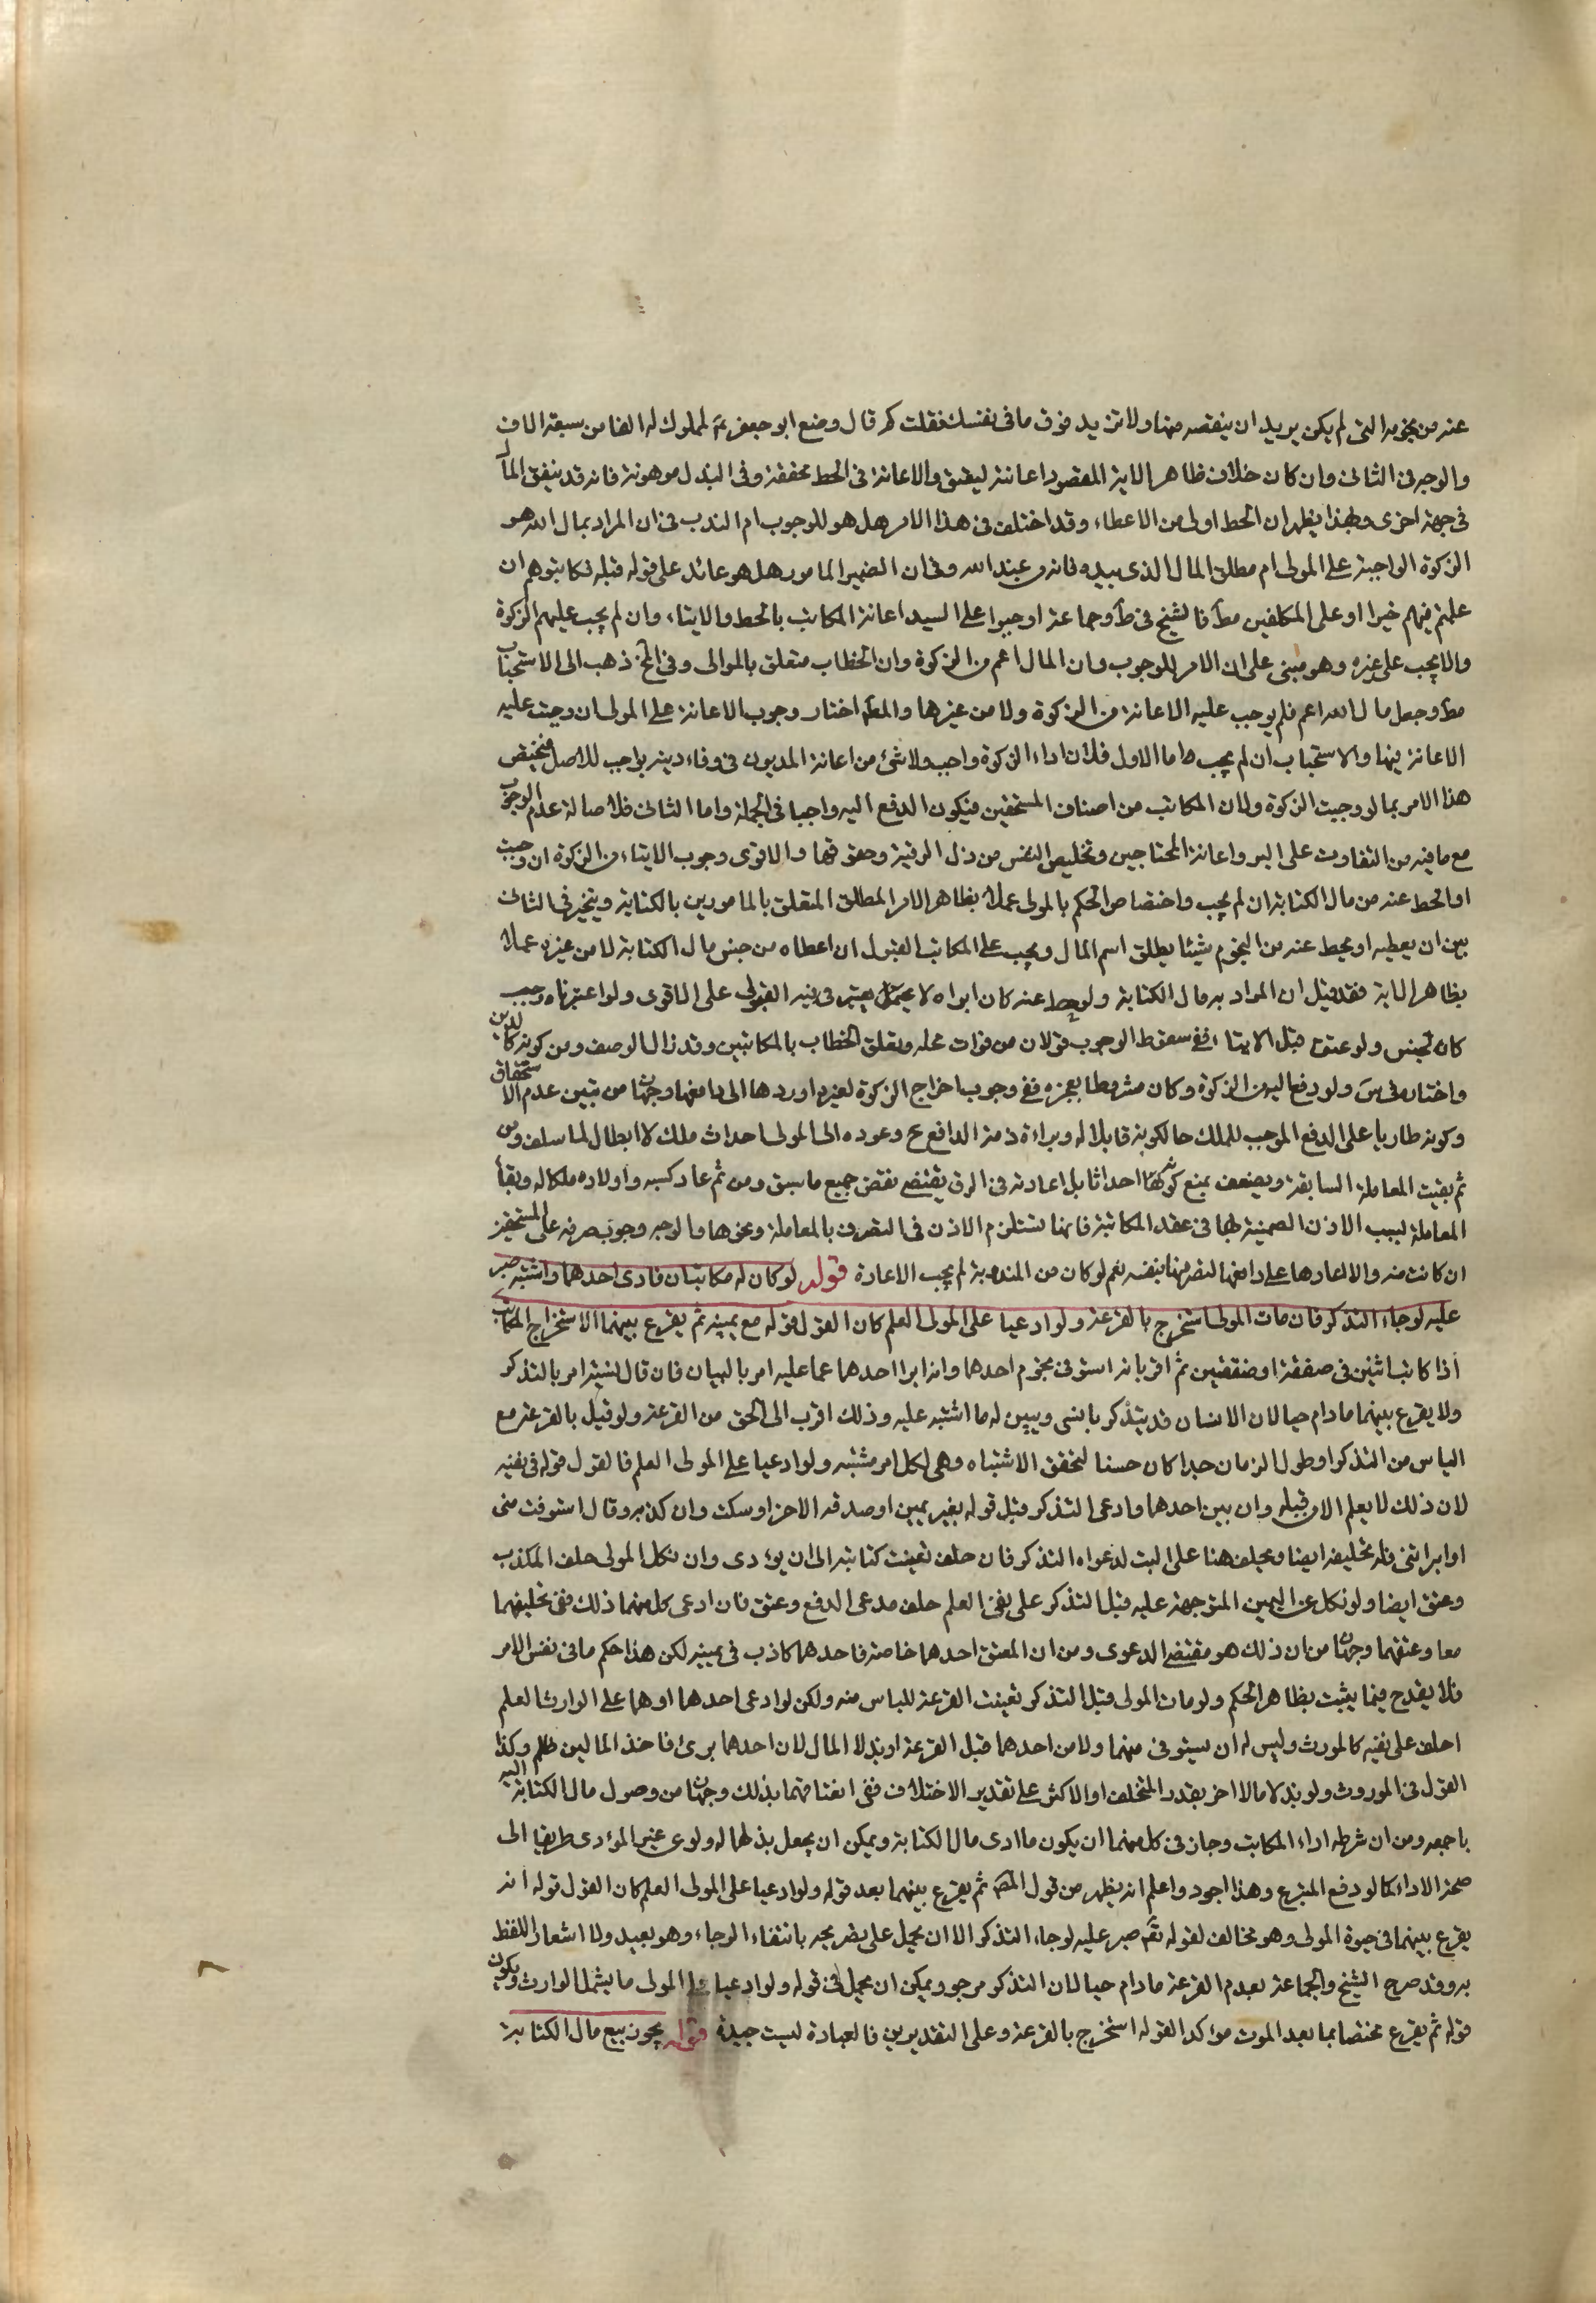 عنه من نجومه التى لم يكن يريد ان ينقصه منها ولا تزيد فوق ما فى نفسك فقلت كم قال وضع ابو جعفر ع لمملوك له الفا من ستة الاف
والوجه فى الثانى وان كان خلاف ظاهر الاية المقصود اعانته ليعتق والاعانة فى الحط محققة وفى البذل موهونة فانه قد ينفق المال
فى جهة اخرى وبهذا يظهر ان الحط اولى من الاعطاء وقد اختلف فى هذا الامر هل هو للوجوب ام الندب فى ان المراد بمال الله هو
الزكوة الواجبة على المولى ام مطلق المال الذى بيده فانه من عند الله وفى ان الضمير المامور هل هو عائد على قوله قبله فكاتبوهم ان
علمتم فيهم خيرا او على المكلفين مط فالشيخ فى ط وجماعة اوجبوا على السيد اعانة المكاتب بالحط والايتاء وان لم يجب عليهم الزكوة
والا يجب على غيره وهو مبنى على ان الامر للوجوب وان المال اعم من الزكوة وان الخطاب متعلق بالموالى وفى الخ ذهب الى الاستحباب
مط وجعل مال الله اعم فلم يوجب عليه الاعانة من الزكوة ولا من غيرها والمصه اختار وجوب الاعانة على المولى ان وجبت عليه
الاعانة فيها والاستحباب ان لم يجب اما الاول فلان اداء الزكوة واجب ولا شئ من اعانة المديون فى وفاء دينه بواجب للاصل فيختص
هذا الامر بما لو وجبت الزكوة ولان المكاتب من اصناف المستحقين فيكون الدفع اليه واجبا فى الجملة واما الثانى فلاصالة عدم الوجوب
مع ما فيه من التعاون على البر واعانة المحتاجين وتخليص النفس من ذل الرقية وحقوقها والاقوى وجوب الايتاء من الزكوة ان وجبت
او الحط عنه من مال الكتابة ان لم يجب واختصاص الحكم بالمولى عملا بظاهر الامر المطلق المتعلق بالمامورين بالكتابة ويتخير فى الثانى
بين ان يعطيه او يحط عنه من النجوم شيئا يطلق اسم المال ويجب على المكاتب القبول ان اعطاه من جنس مال الكتابة لا من غيره عملا
بظاهر الاية فقد قيل ان المراد به مال الكتابة ولو حط عنه كان ابراه لا يعتبر فيه القبول على الاقوى ولو اعتبرناه وجب
كان لجنس ولو عتق قبل الايتاء ففى سقوط الوجوب قولان من فوات محله وتعلق الخطاب بالمكاتبين وقد زال الوصف ومن كونه كالدين
واختاره فى س ولو دفع اليه من الزكوة وكان مشروطا بعجزه ففى وجوب اخراج الزكوة لغيره او ردها الى دافعها وجهان من تبين عدم الاستحقاق
وكونه طاريا على الدفع الموجب للملك حال كونه قابلا له وبراءة ذمة الدافع ح وعوده الى المولى احداث ملك لا ابطال لما سلف ومن
ثم بقيت المعاملة السابقة ويضعف بمنع كونه احداثا بل اعادته فى الرق يقتضى نقض جميع ما سبق ومن ثم عاد كسبه واولاده ملكا له وبقاء
المعاملة بسبب الاذن الضمنية لها فى عقد المكاتبة فانها تستلزم الاذن فى التصرف بالمعاملة ونحوها والوجه وجوب صرفه على المستحقين
ان كانت منه والا اعادها على دافعها ليصرفها بنفسه نعم لو كان من المندوبة لم يجب الاعادة قوله لو كان له مكاتبان فادى احدهما واشتبه صبر
عليه لرجاء التذكر فان مات المولى استخرج بالقرعة ولو ادعيا على المولى العلم كان القول قوله مع يمينه ثم يقرع بينهما لاستخراج المكاتب
اذا كاتب اثنين فى صفقة او صفقتين ثم اقر بانه استوفى نجوم احدهما وانه ابرا احدهما عما عليه امر بالبيان فان قال نسيته امر بالتذكر
ولا يقرع بينهما ما دام حيا لان الانسان قد يتذكر ما نسى ويبين له ما اشتبه عليه وذلك اقرب الى الحق من القرعة ولو قيل بالقرعة مع
الياس من التذكر او طول الزمان جدا كان حسنا لتحقق الاشتباه وهى لكل امر مشتبه ولو ادعيا على المولى العلم فالقول قوله فى نفيه
لان ذلك لا يعلم الا من قبله وان بين احدهما وادعى التذكر قبل قوله بغير يمين او صدقه الاخر او سكت وان كذبه وقال استوفيت منى
او ابراتنى فله تحليفه ايضا ويحلف هنا على البت لدعواه التذكر فان حلف بقيت كتابته الى ان يؤدى وان نكل المولى حلف المكذب
وعتق ايضا ولو نكل عن اليمين المتوجهة عليه قبل التذكر على نفى العلم حلف مدعى الدفع وعتق فان ادعى كل منهما ذلك ففى تحليفهما
معا وعتقهما وجهان من ان ذلك هو مقتضى الدعوى ومن ان المعتق احدهما خاصة فاحدهما كاذب فى يمينه لكن هذا حكم ما فى نفس الامر
فلا يقدح فيما يثبت بظاهر الحكم ولو مات المولى قبل التذكر تعينت القرعة للياس منه ولكن لو ادعى احدهما او هما على الوارث العلم
احلف على نفيه كالمورث وليس له ان يستوفى منهما ولا من احدهما قبل القرعة او بذلا المال لان احدهما برئ فاخذ المالين ظلم وكذا
القول فى الموروث ولو بذلا مالا اخر بقدر المتخلف او الاكثر على تقدير الاختلاف ففى انعتاقهما بذلك وجهان من وصول مال الكتابة اليه
باجمعه ومن ان شرطه اداء المكاتب وجاز فى كل منهما ان يكون ما ادى مال الكتابة ويمكن ان يجعل بذلهما له ولو عن غير المؤدى طريقا الى
صحة الاداء كما لو دفع المتبرع وهذا اجود واعلم انه يظهر من قول المصه ثم يقرع بينهما بعد قوله ولو ادعيا على المولى العلم كان القول قوله انه
يقرع بينهما فى حيوة المولى وهو مخالف لقوله صبر عليه لرجاء التذكر الا ان يحمل على تصريحه بانتفاء الرجاء وهو بعيد ولا اشعار للفظ
به وقد صرح الشيخ والجماعة بعدم القرعة ما دام حيا لان التذكر مرجو ويمكن ان يحمل فى قوله ولو ادعيا على المولى ما يشمل الوارث ويكون
قوله ثم يقرع مختصا بما بعد الموت مؤكدا لقوله استخرج بالقرعة وعلى التقديرين فالعبارة ليست جيدة قوله يجوز بيع مال الكتابة